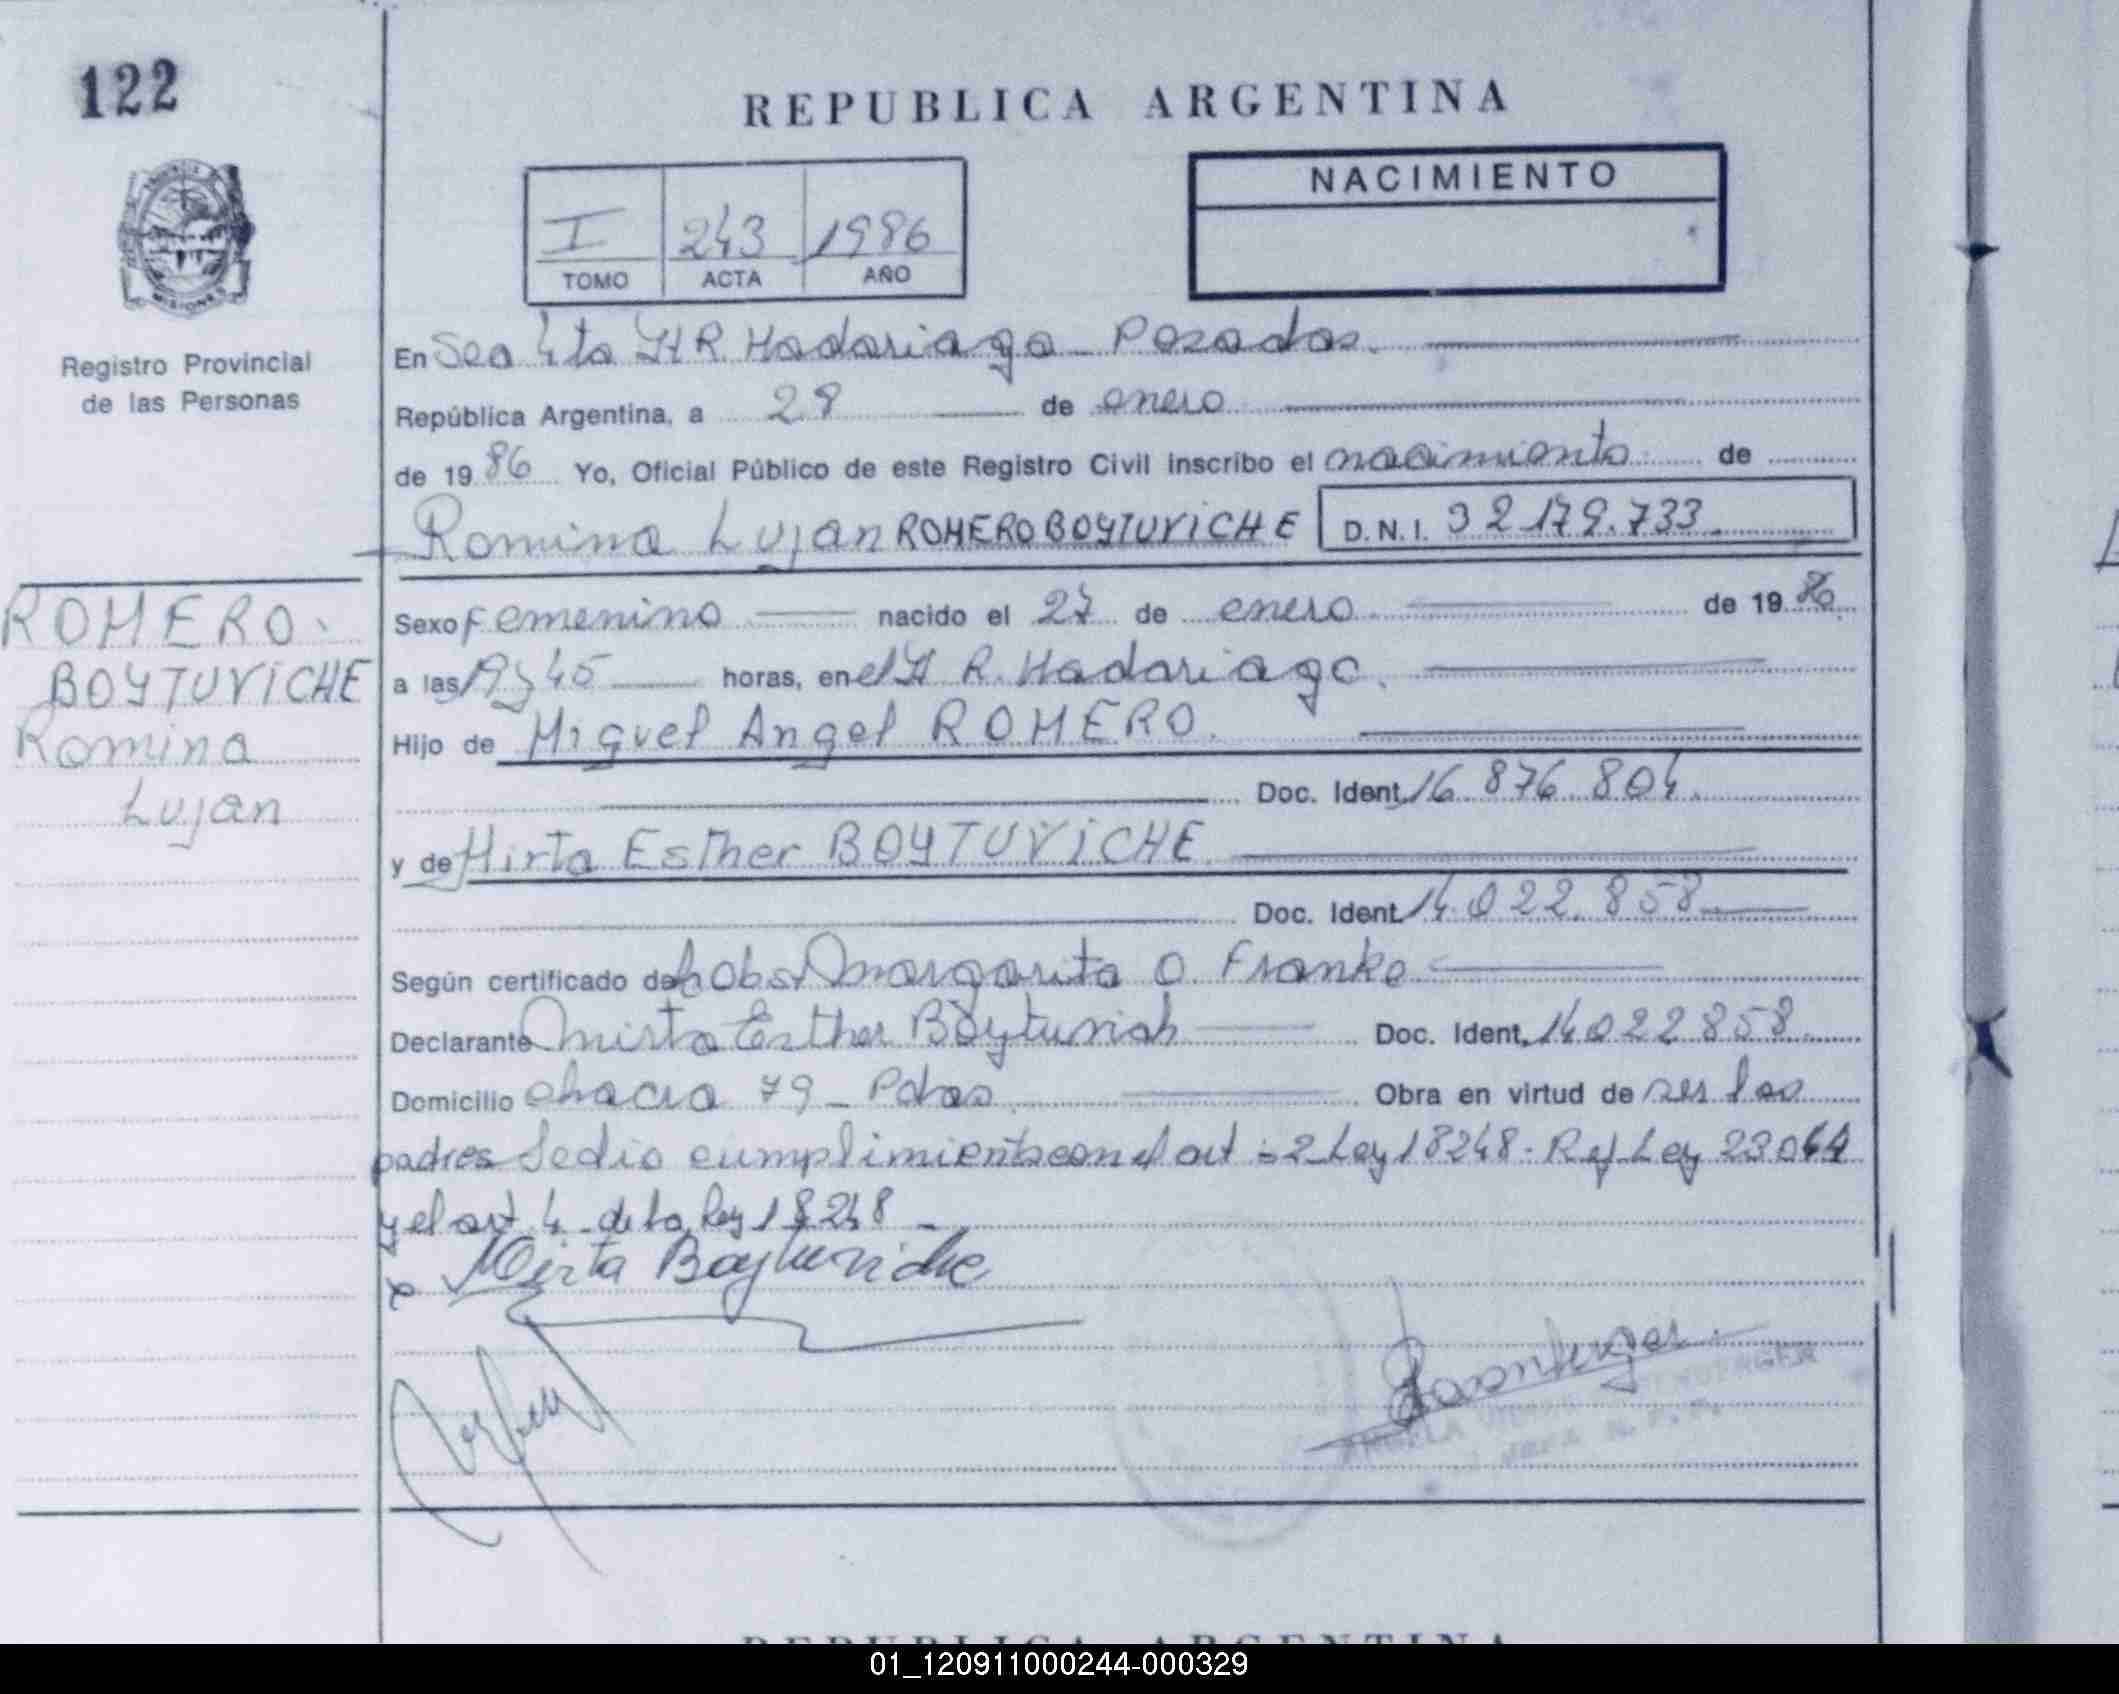 122
REPUBLICA ARGENTINA
NACIMIENTO
I 243 1986
TOMO ACTA AÑO
MISIONES
Registro Provincial
de las Personas
En Sec 4ta H R. Madariaga - Posadas.
República Argentina, a 28 de enero
de 1986 Yo, Oficial Público de este Registro Civil inscribo el nacimiento de
Romina Lujan ROMERO BOYTUVICHE D.N.I. 32.179.733
ROMERO
BOYTUVICHE
Romina
Lujan
Sexo femenino nacido el 27 de enero de 1986
a las 19,45 horas, en el H R. Madariaga.
Hijo de Miguel Angel ROMERO.
Doc. Ident. 16.876.804.
y de Mirta Esther BOYTUVICHE
Doc. Ident. 14.022.858
Según certificado de Margarita O Franko
Declarante Mirta Esther Doc. Ident. 14.022.858
Domicilio chacra 79 - Pdas. Obra en virtud de ser los
padres Se dio cumplimiento con el art 2 Ley 18248 - Ref Ley 23064
y el art. 4 de la ley 18248 -
Mirta Boytuviche
REPUBLICA ARGENTINA
01_120911000244-000329